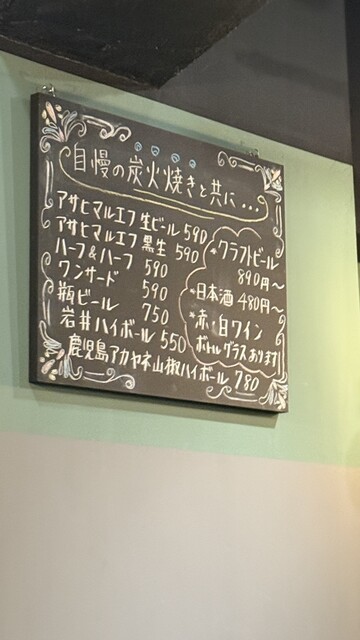 自慢の炭火焼きと共に...
アサヒマルエフ 生ビール 590
アサヒマルエフ 黒生 590
ハーフ&ハーフ 590
ワンサード 590
瓶ビール 750
岩井ハイボール 550
鹿児島アカヤネ山椒ハイボール 780
*クラフトビール
890円〜
*日本酒 480円〜
*赤・白ワイン
ボトル グラスあります!